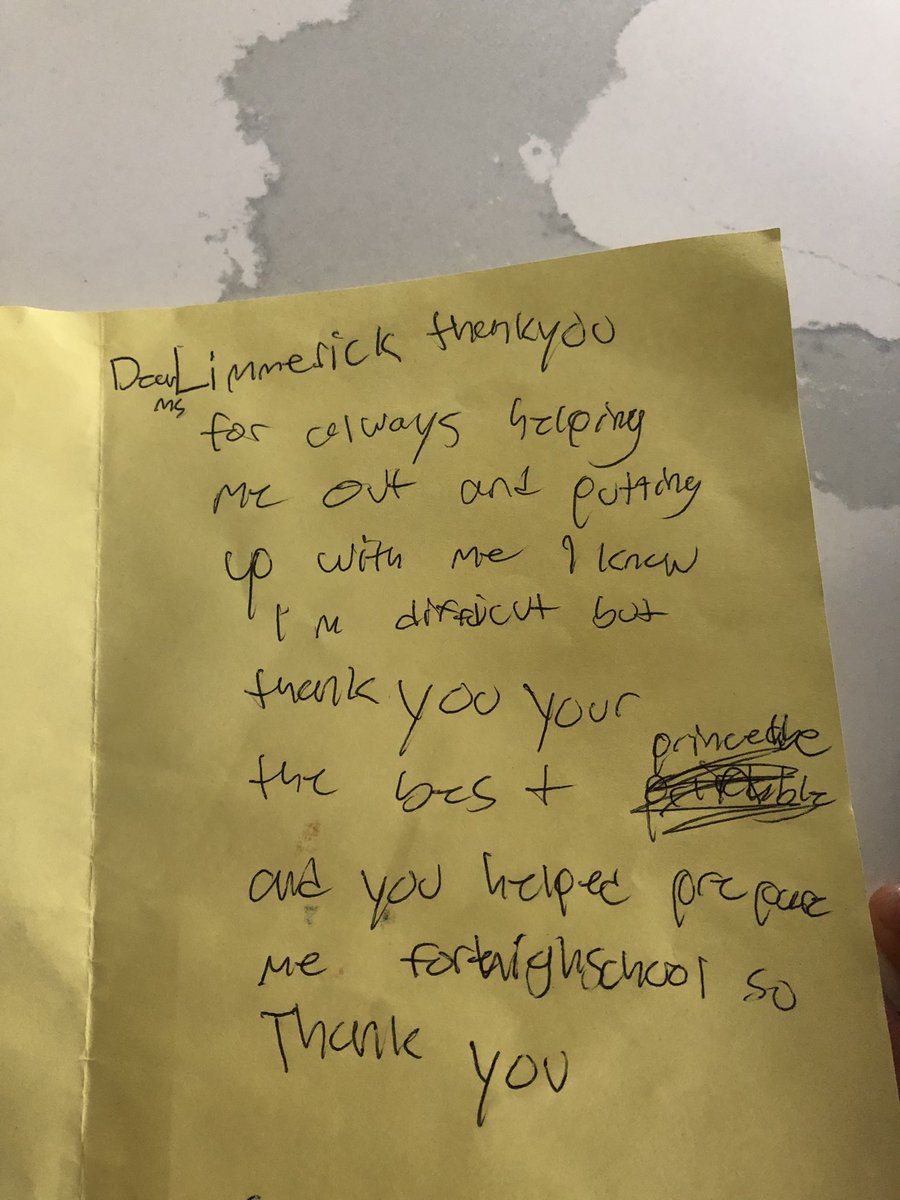 Dear Ms Limmerick thankyou
for always helping
me out and putting
up with me I know
I'm difficut but
thank you your
the best
and you helped prepare
me for highschool so
Thank you